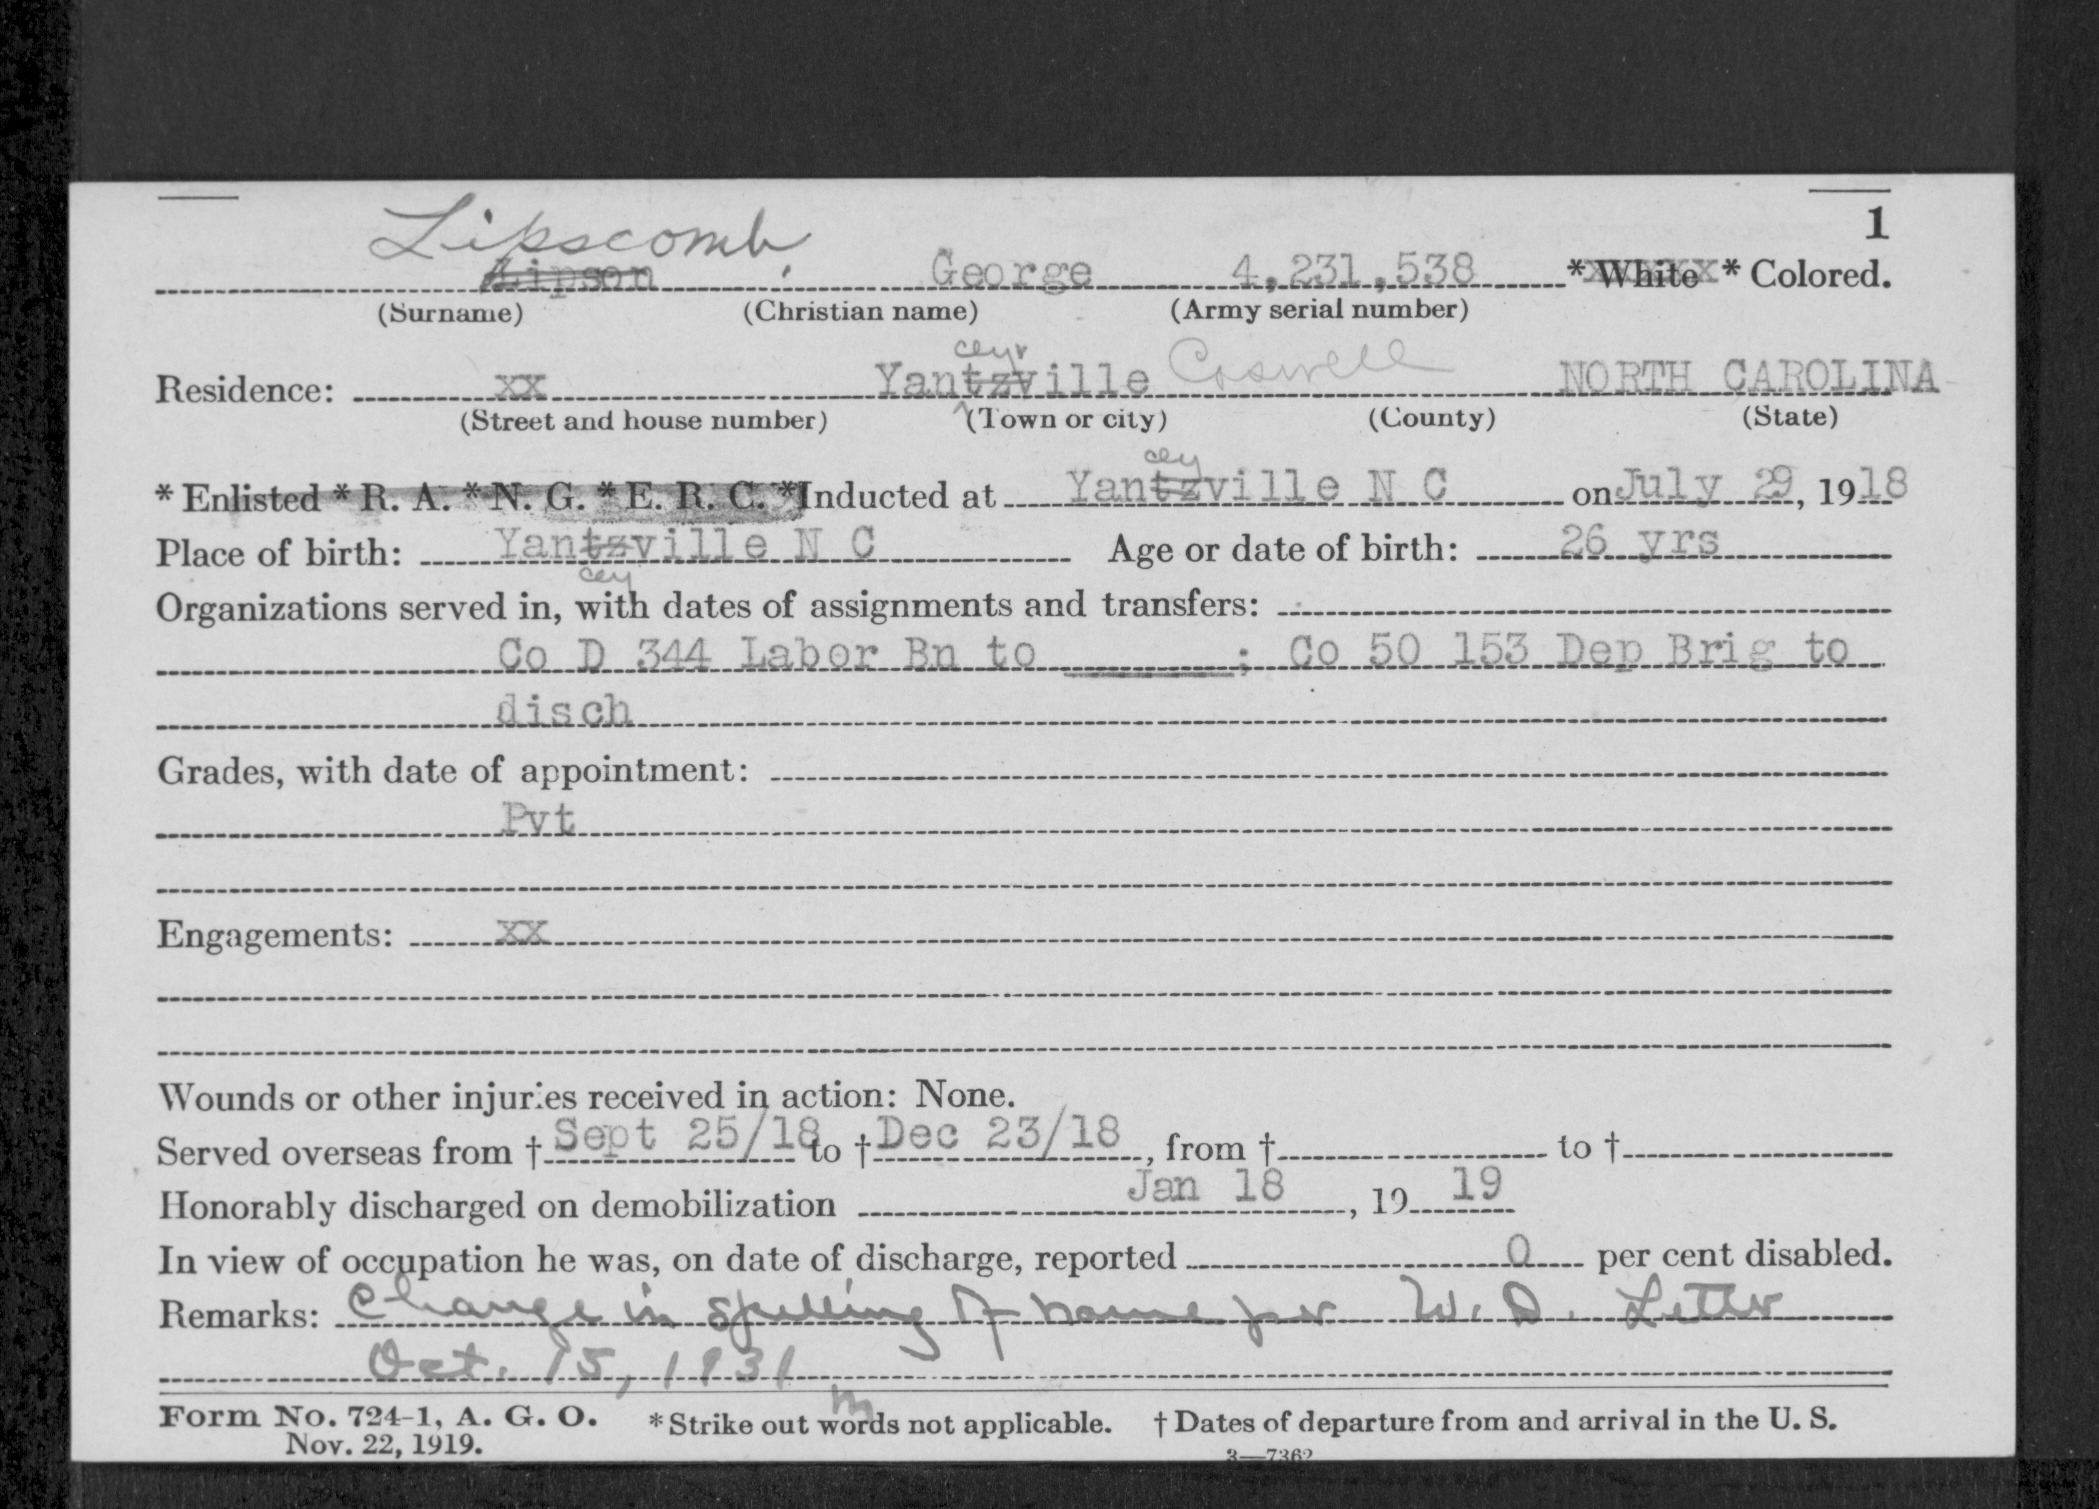 1
Lipscomb,
Lipson, George 4,231,538 *White *Colored.
(Surname) (Christian name) (Army serial number)
ceyv
Residence: xx Yantzville Coswell NORTH CAROLINA
(Street and house number) (Town or city) (County) (State)
cey
*Enlisted *R. A. *N. G. *E. R. C. *Inducted at Yantzville N C on July 29, 1918
Place of birth: Yantzville N C Age or date of birth: 26 yrs
cey
Organizations served in, with dates of assignments and transfers:
Co D 344 Labor Bn to ______; Co 50 153 Dep Brig to
disch
Grades, with date of appointment:
Pvt
Engagements: xx
Wounds or other injuries received in action: None.
Served overseas from † Sept 25/18 to † Dec 23/18, from † to †
Honorably discharged on demobilization Jan 18, 19 19
In view of occupation he was, on date of discharge, reported 0 per cent disabled.
Remarks: Change in spelling of name per W. D. Letter
Oct. 15, 1931
m
Form No. 724-1, A. G. O. *Strike out words not applicable. † Dates of departure from and arrival in the U. S.
Nov. 22, 1919.
3—7362